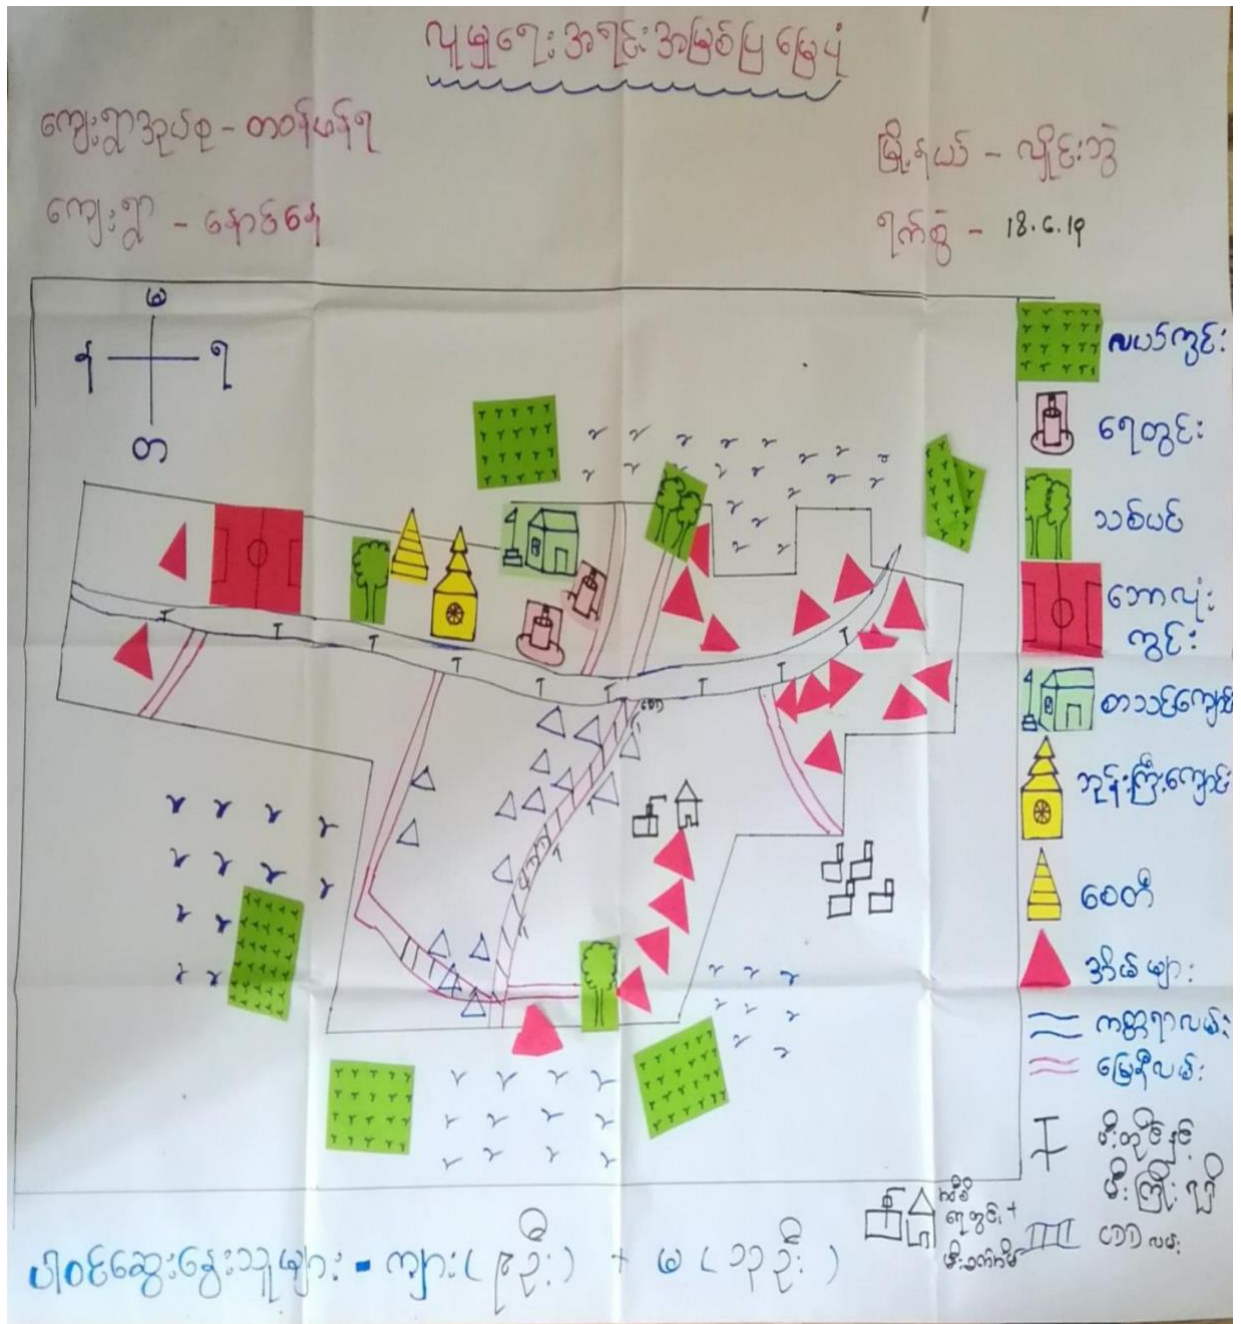 လူမှုရေးအရင်းအမြစ်ပြမြေပုံ
ကျေးရွာအုပ်စု - တဝန်ဖန်ရ
မြို့နယ် - လှိုင်းဘွဲ
ကျေးရွာ - နောင်နေ
ရက်စွဲ - 18.6.19
မ
န ရ
တ
လယ်ကွင်း
ရေတွင်း
သစ်ပင်
ဘောလုံး
ကွင်း
စာသင်ကျောင်း
ဘုန်းကြီးကျောင်း
စေတီ
အိမ်များ
ကတ္တရာလမ်း
မြေနီလမ်း
မီးတိုင်နှင့်
မီးကြိုး
ရေတွင်း +
လမ်း
ပါဝင်ဆွေးနွေးသူများ - ကျား (၉ဦး) + မ (၁၃ဦး)